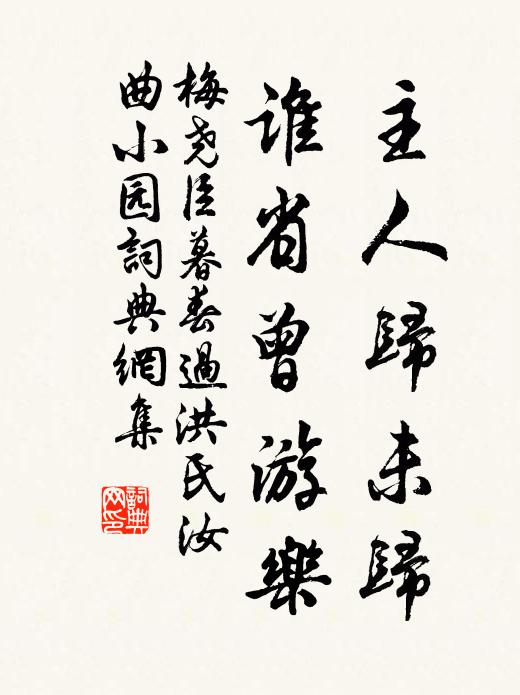 主人歸未歸
誰省曾游樂
梅尧臣暮春過洪氏汝
曲小园詞典網集
詞典
网印